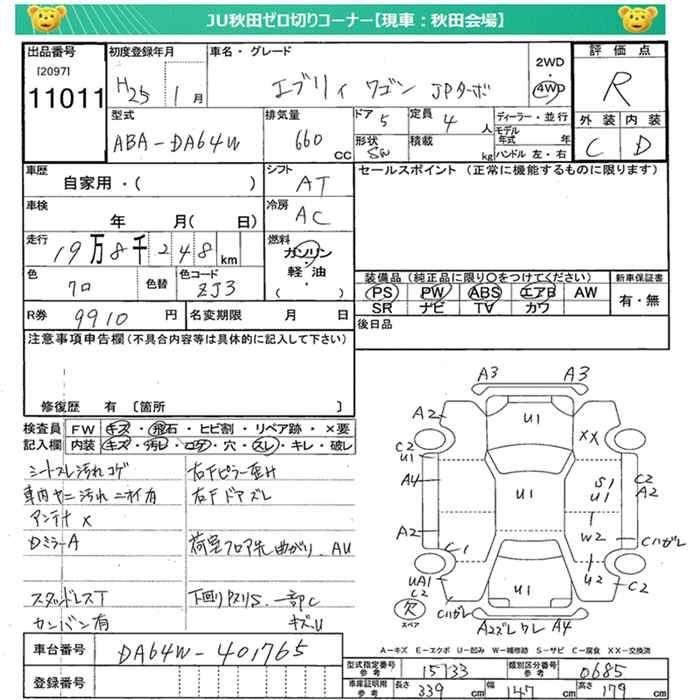 JU秋田ゼロ切りコーナー【現車：秋田会場】
出品番号
[2097]
11011
初度登録年月
H25 1月
車名・グレード
エブリィ ワゴン JPターボ
2WD
・
4WD
評価点
R
外装 内装
C D
型式
ABA-DA64W
排気量
660 CC
ドア 5
形状 SW
定員 4人
積載 kg
ディーラー・並行
モデル年式 年
ハンドル 左・右
車歴
自家用・( )
シフト
AT
セールスポイント (正常に機能するものに限ります)
車検
年 月( 日)
冷房
AC
走行
19万8千248km
燃料
ガソリン
・
軽・油
・
( )
色
クロ
色替
色コード
ZJ3
装備品(純正品に限り○をつけてください)
PS PW ABS エアB AW
SR ナビ TV カワ
新車保証書
有・無
R券
9910円
名変期限 月 日
後日品
注意事項申告欄(不具合内容等は具体的に記入して下さい)
修復歴 有 〔箇所 〕
検査員記入欄
FW キズ・飛石・ヒビ割・リペア跡・×要
内装 キズ・汚レ・コゲ・穴・スレ・キレ・破レ
シートスレ汚れコゲ
車内ヤニ汚れニオイ有
アンテナ×
DミラーA
スタッドレスT
カンバン有
右Fピラー歪み
右Fドアズレ
荷室フロア先曲がり、AU
下廻りサビS 一部C
キズU
A3
A3
A2
U1
XX
C2
U1
A4
U1
S1
U1
C2
A2
A2
W2
Cハガレ
C1
UA1
C2
U1
U2
C2
欠
スペア
Cハガレ
A2ズレワレ
A4
A－キズ E－エクボ U－凹み W－補修跡 S－サビ C－腐食 XX－交換済
車台番号
DA64W-401765
登録番号
型式指定番号 参考
15733
類別区分番号 参考
0685
車庫証明用 参考
長さ 339cm 幅 147cm 高さ 179cm